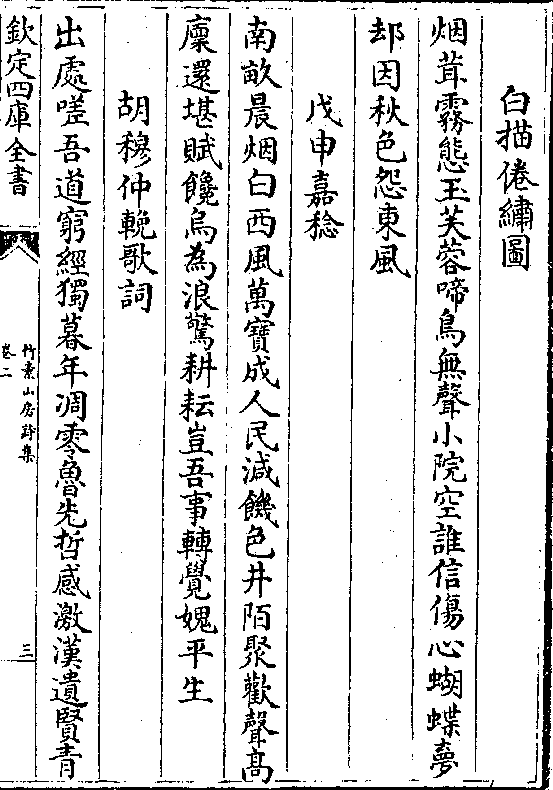 白描倦繡圖
烟茸霧態玉芙蓉啼鳥無聲小院空誰信傷心蝴蝶夢
却因秋色怨東風
戊申嘉稔
南畝晨烟白西風萬寶成人民減饑色井陌聚歡聲髙
廩還堪賦饞烏為浪驚耕耘豈吾事轉覺媿平生
胡穆仲輓歌詞
出處嗟吾道窮經獨暮年凋零魯先哲感激漢遺賢青
欽定四庫全書
竹素山房詩集
卷二
三